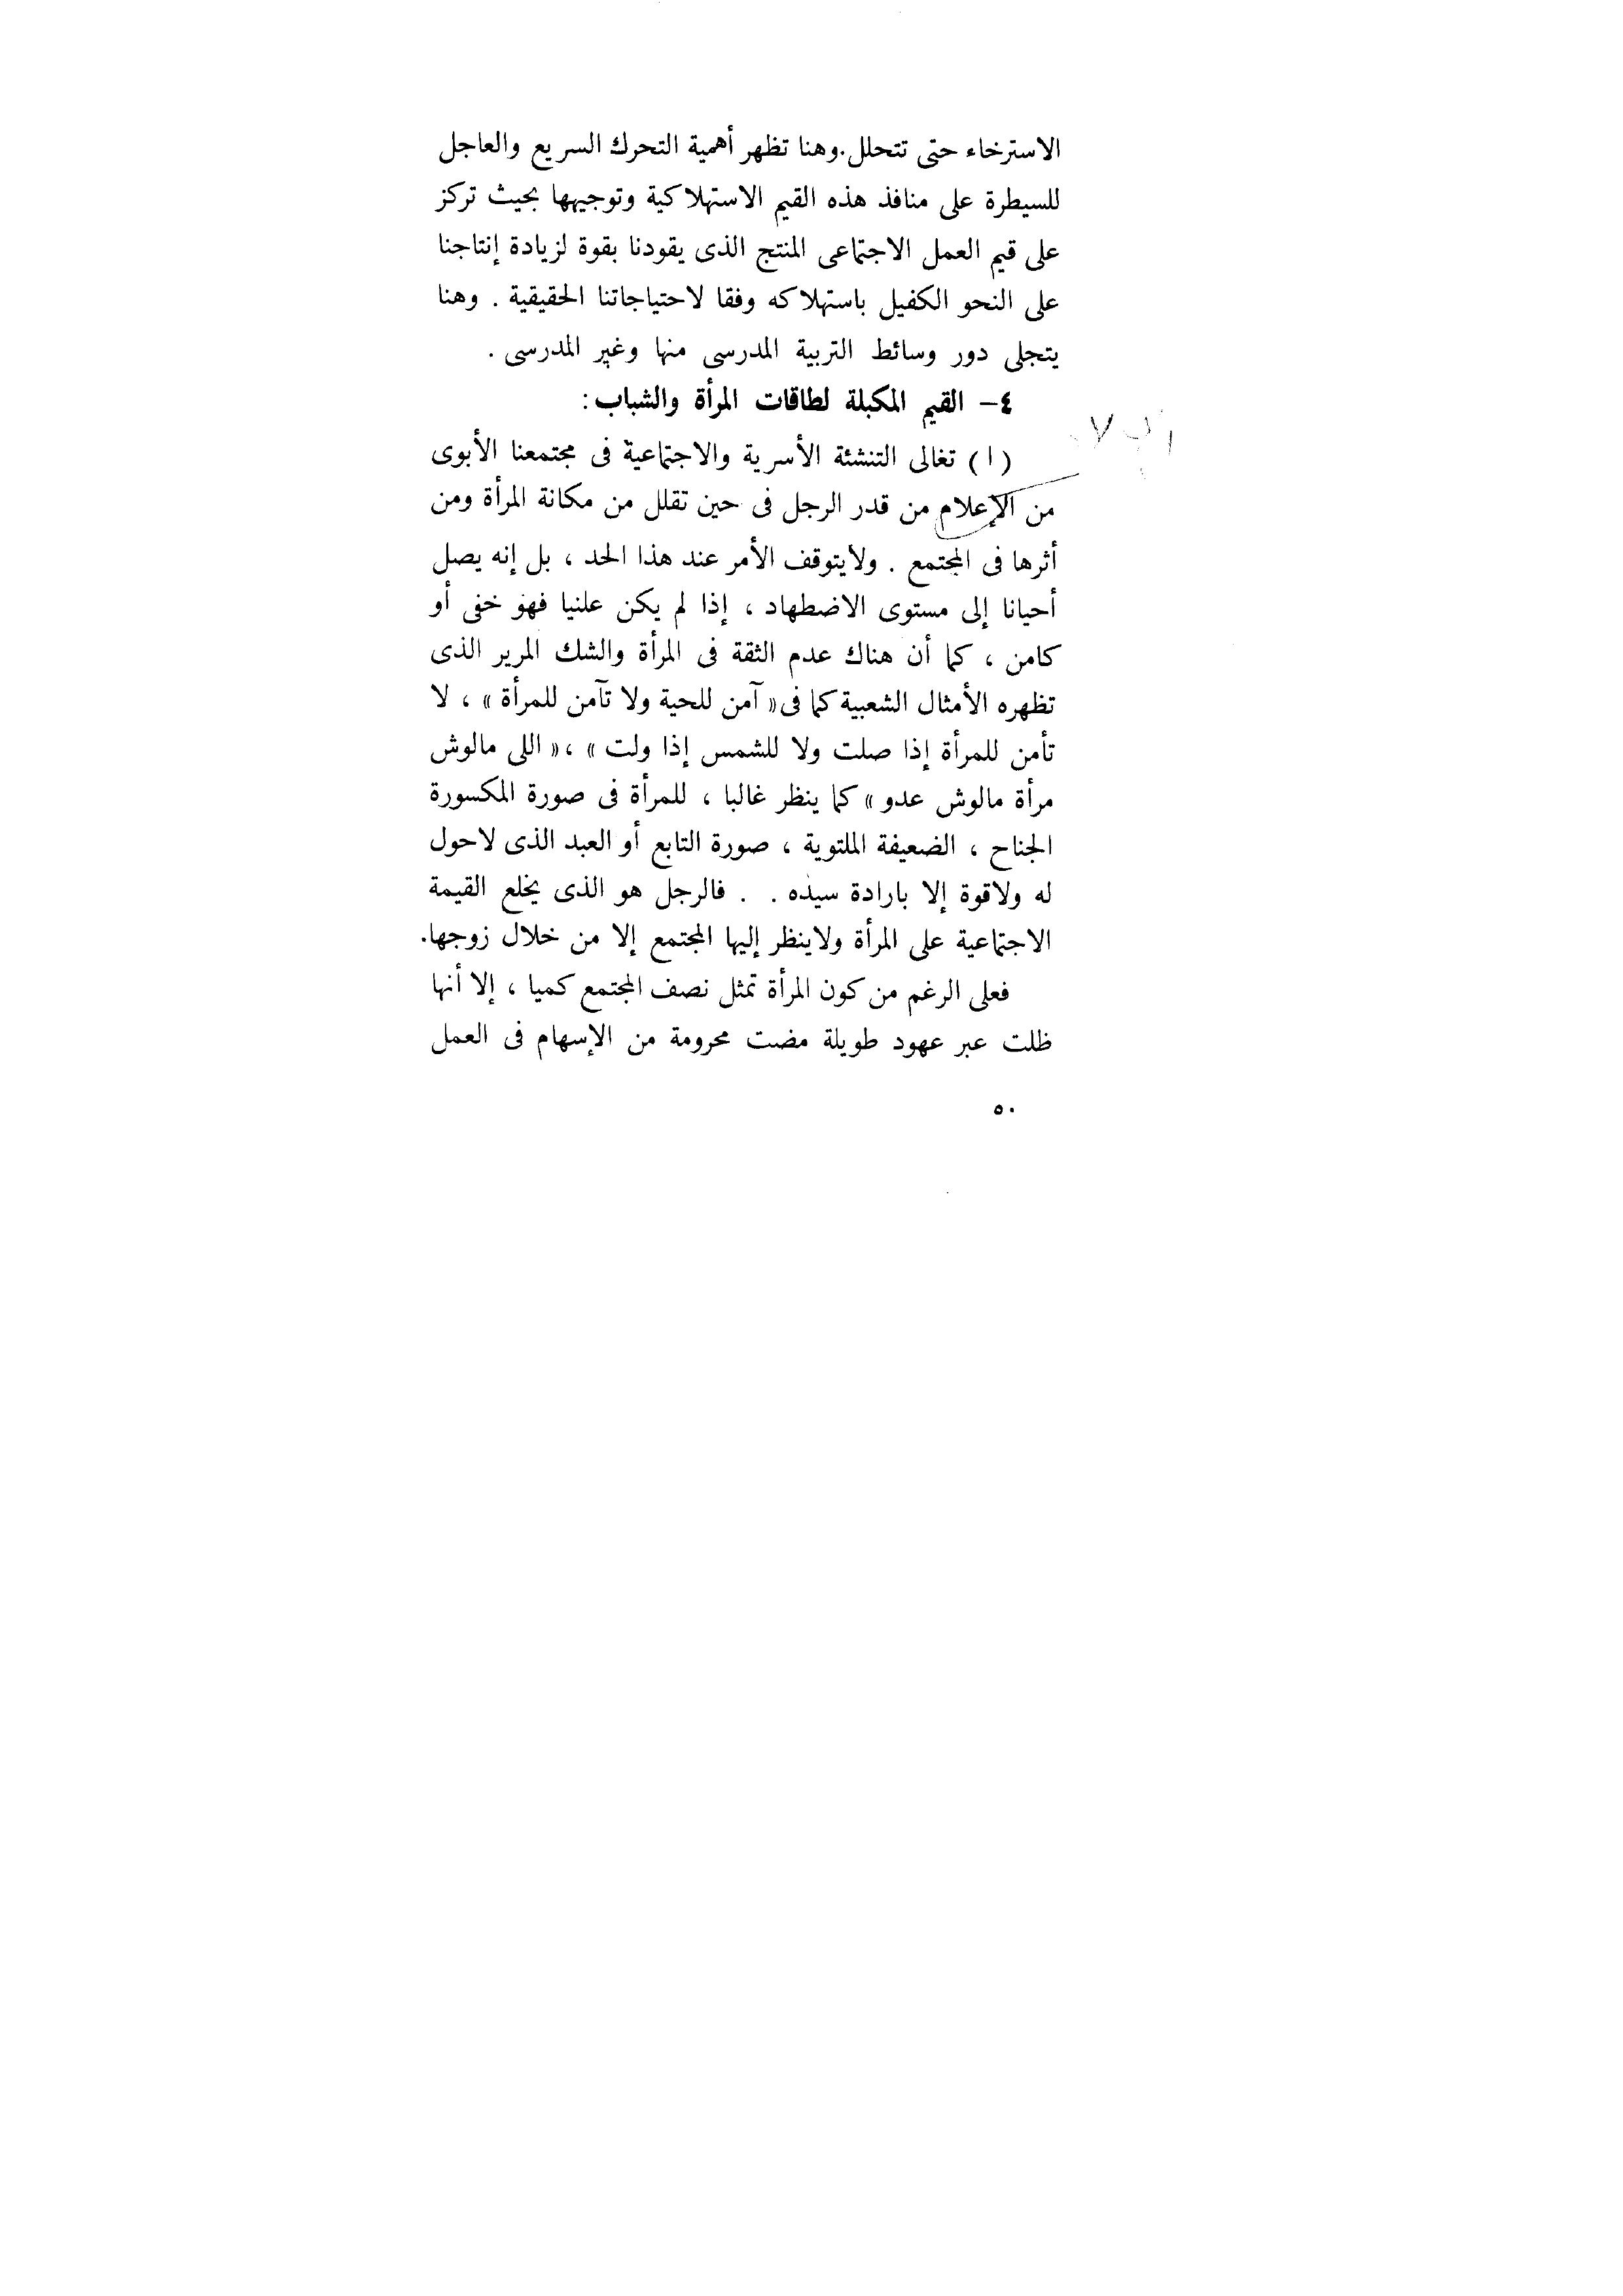 الاسترخاء حتى تتحلل. وهنا تظهر أهمية التحرك السريع والعاجل
للسيطرة على منافذ هذه القيم الاستهلاكية وتوجيهها بحيث تركز
على قيم العمل الاجتماعى المنتج الذى يقودنا بقوة لزيادة إنتاجنا
على النحو الكفيل باستهلاكه وفقا لاحتياجاتنا الحقيقية . وهنا
يتجلى دور وسائط التربية المدرسى منها وغير المدرسى .
٤- القيم المكبلة لطاقات المرأة والشباب :
(ا) تغالى التنشئة الأسرية والاجتماعية فى مجتمعنا الأبوى
من الإعلام من قدر الرجل فى حين تقلل من مكانة المرأة ومن
أثرها فى المجتمع . ولايتوقف الأمر عند هذا الحد ، بل إنه يصل
أحيانا إلى مستوى الاضطهاد ، إذا لم يكن علنيا فهو خفى أو
كامن ، كما أن هناك عدم الثقة فى المرأة والشك المرير الذى
تظهره الأمثال الشعبية كما فى « آمن للحية ولا تآمن للمرأة » ، لا
تأمن للمرأة إذا صلت ولا للشمس إذا ولت » ، « اللى مالوش
مرأة مالوش عدو » كما ينظر غالبا ، للمرأة فى صورة المكسورة
الجناح ، الضعيفة الملتوية ، صورة التابع أو العبد الذى لاحول
له ولاقوة إلا بارادة سيده . . فالرجل هو الذى يخلع القيمة
الاجتماعية على المرأة ولاينظر إليها المجتمع إلا من خلال زوجها.
فعلى الرغم من كون المرأة تمثل نصف المجتمع كميا ، إلا أنها
ظلت عبر عهود طويلة مضت محرومة من الإسهام فى العمل
٥٠